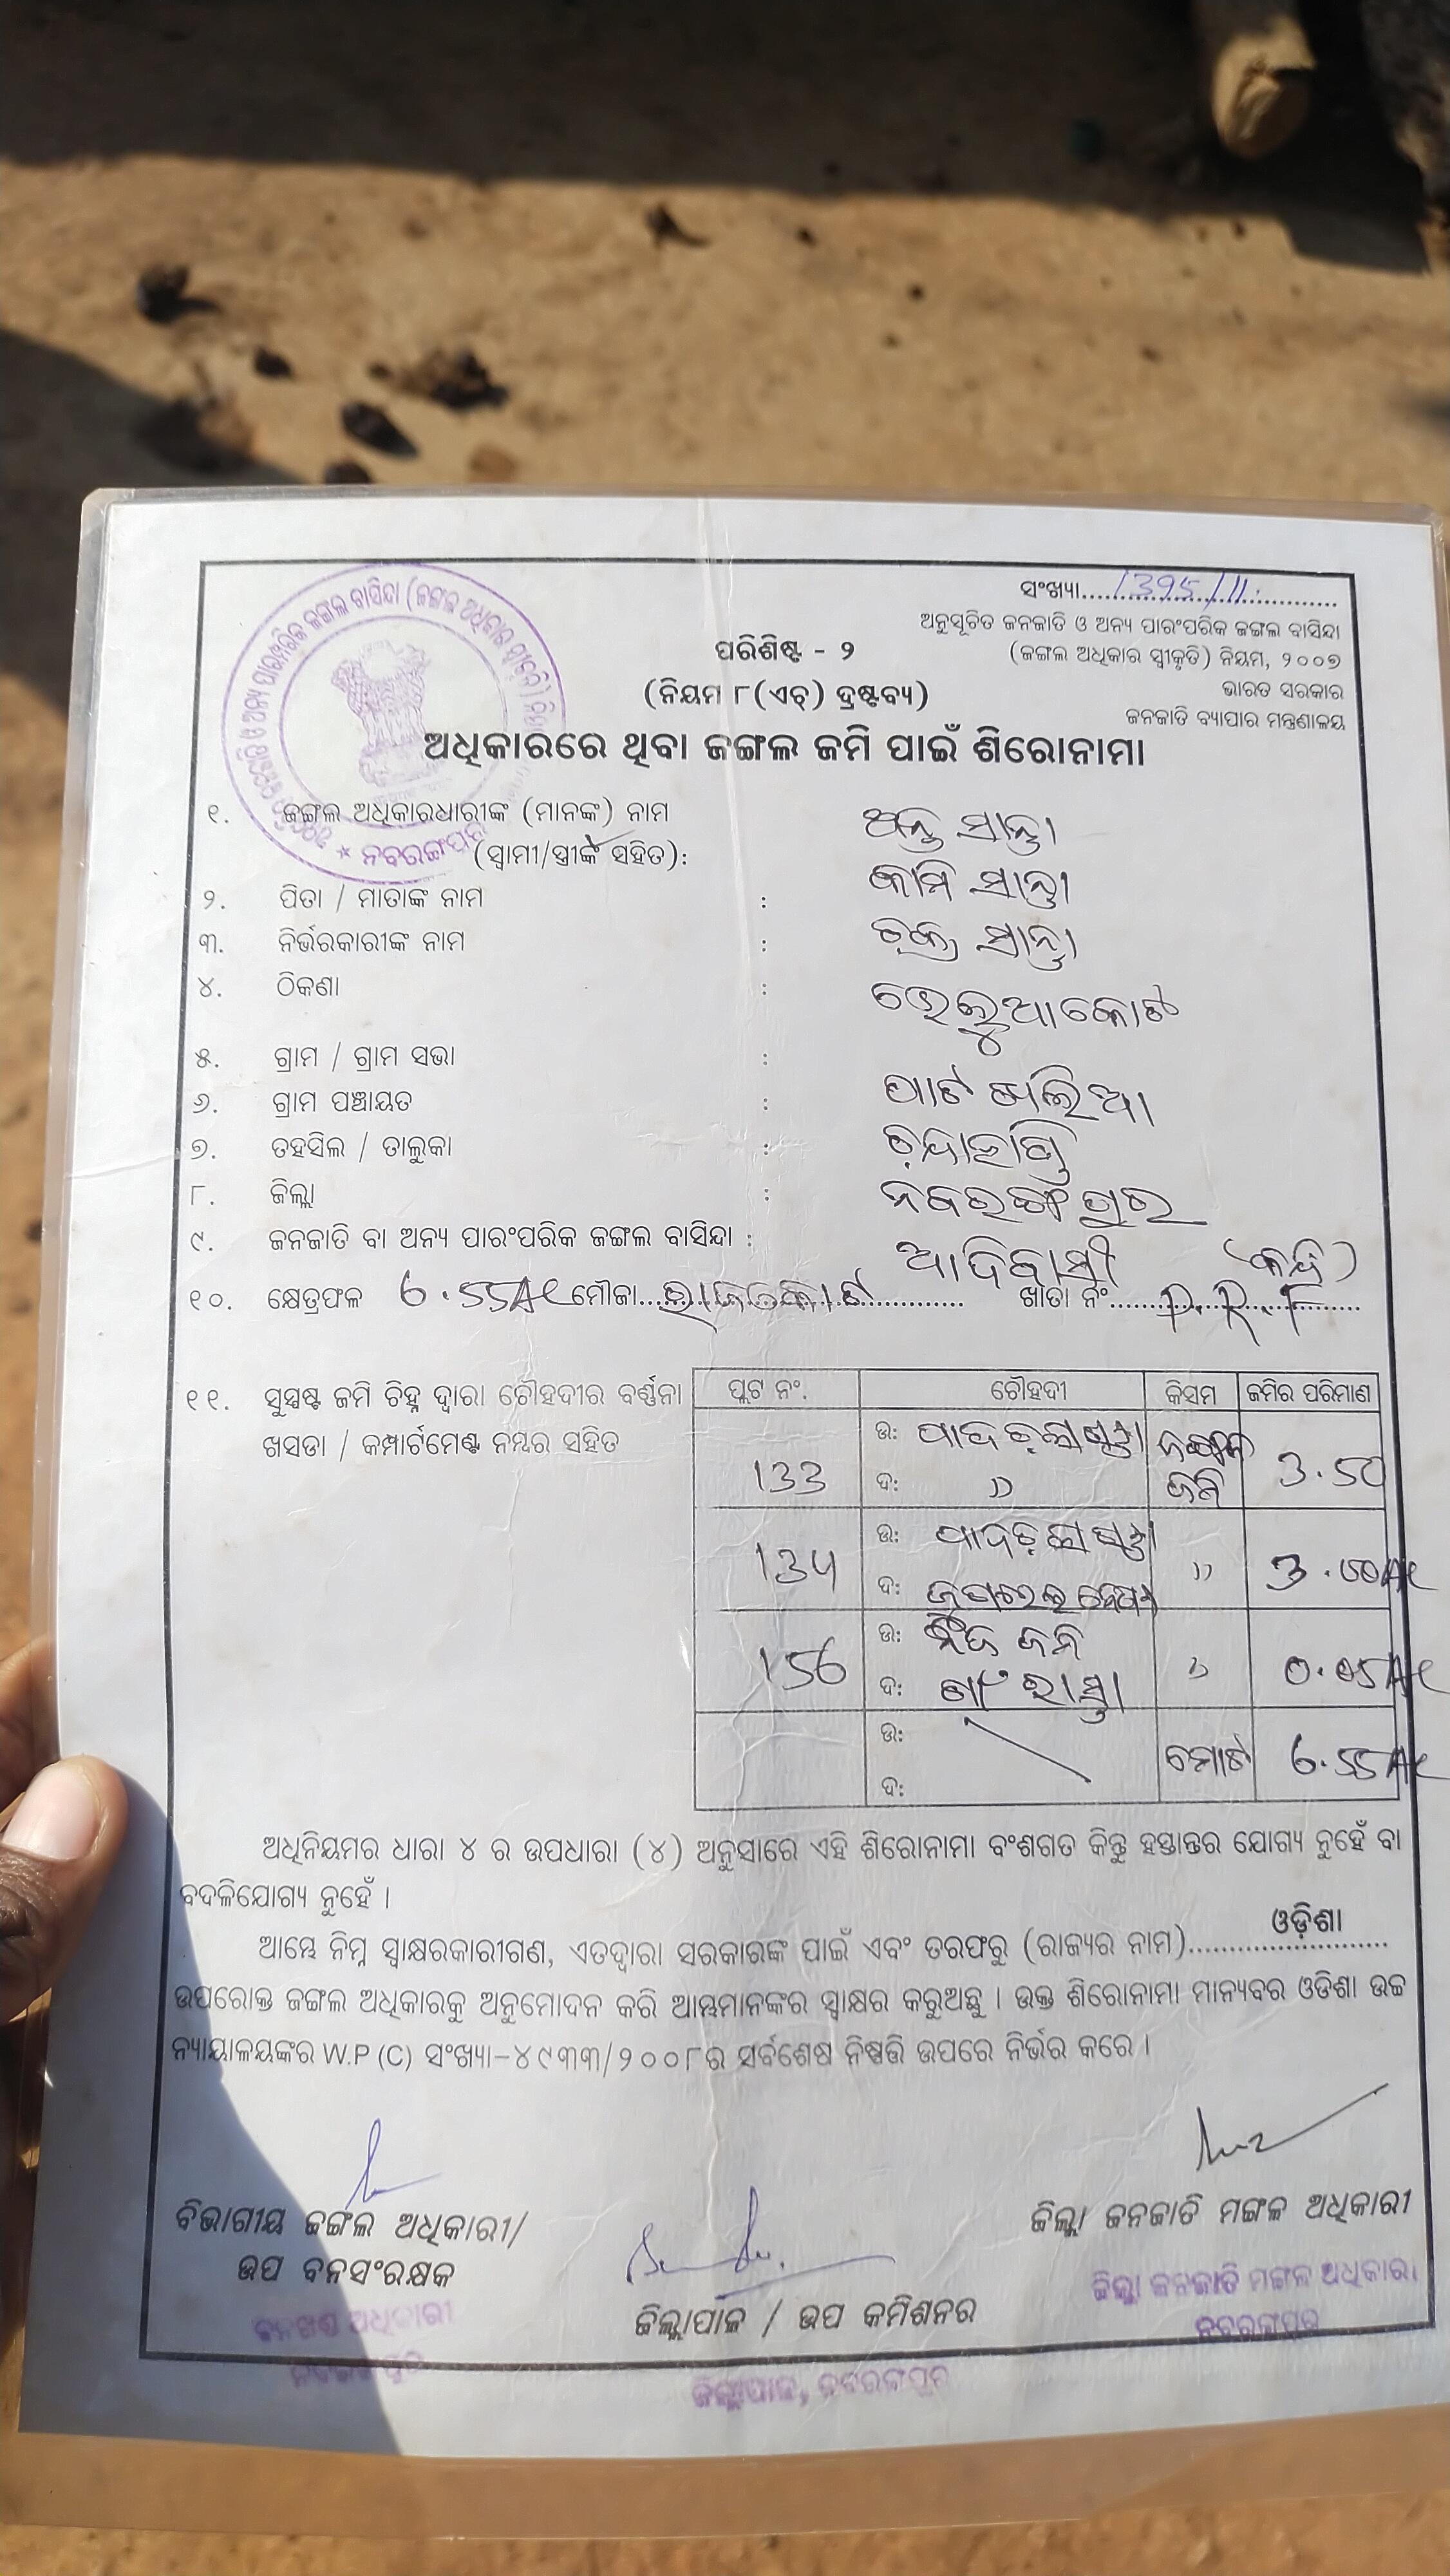 ସଂଖ୍ୟା..............................
ଅନୁସୂଚିତ ଜନଜାତି ଓ ଅନ୍ୟ ପାରଂପରିକ ଜଙ୍ଗଲ ବାସିନ୍ଦା
(ଜଙ୍ଗଲ ଅଧିକାର ସ୍ୱୀକୃତି) ନିୟମ, ୨୦୦୭
ଭାରତ ସରକାର
ଜନଜାତି ବ୍ୟାପାର ମନ୍ତ୍ରଣାଳୟ
ପରିଶିଷ୍ଟ - ୨
(ନିୟମ ୮(ଏଚ୍) ଦ୍ରଷ୍ଟବ୍ୟ)
ଅଧିକାରରେ ଥିବା ଜଙ୍ଗଲ ଜମି ପାଇଁ ଶିରୋନାମା
୧. ଜଙ୍ଗଲ ଅଧିକାରଧାରୀଙ୍କ (ମାନଙ୍କ) ନାମ
(ସ୍ୱାମୀ/ସ୍ତ୍ରୀଙ୍କ ସହିତ):
୨. ପିତା / ମାତାଙ୍କ ନାମ :
୩. ନିର୍ଭରକାରୀଙ୍କ ନାମ :
୪. ଠିକଣା :
୫. ଗ୍ରାମ / ଗ୍ରାମ ସଭା :
୬. ଗ୍ରାମ ପଞ୍ଚାୟତ :
୭. ତହସିଲ / ତାଲୁକା :
୮. ଜିଲ୍ଲା : ନବରଙ୍ଗପୁର
୯. ଜନଜାତି ବା ଅନ୍ୟ ପାରଂପରିକ ଜଙ୍ଗଲ ବାସିନ୍ଦା : ଆଦିବାସୀ
୧୦. କ୍ଷେତ୍ରଫଳ 6.55Ac ମୌଜା.............................. ଖାତା ନଂ..............................
୧୧. ସୁସ୍ପଷ୍ଟ ଜମି ଚିହ୍ନ ଦ୍ୱାରା ଚୌହଦୀର ବର୍ଣ୍ଣନା
ଖସଡା / କମ୍ପାର୍ଟମେଣ୍ଟ ନମ୍ବର ସହିତ
ପ୍ଲଟ ନଂ. ଚୌହଦୀ କିସମ ଜମିର ପରିମାଣ
133 ଉ: ଜଙ୍ଗଲ 3.50
ଦ: " ଜମି
ଉ: "
ଦ:
156 ଉ: ନିଜ ଜମି "
ଦ: ରାସ୍ତା
ଉ: ମୋଟ 6.55Ac
ଦ:
ଅଧିନିୟମର ଧାରା ୪ ର ଉପଧାରା (୪) ଅନୁସାରେ ଏହି ଶିରୋନାମା ବଂଶଗତ କିନ୍ତୁ ହସ୍ତାନ୍ତର ଯୋଗ୍ୟ ନୁହେଁ ବା
ବଦଳିଯୋଗ୍ୟ ନୁହେଁ ।
ଆମ୍ଭେ ନିମ୍ନ ସ୍ୱାକ୍ଷରକାରୀଗଣ, ଏତଦ୍ଦ୍ୱାରା ସରକାରଙ୍କ ପାଇଁ ଏବଂ ତରଫରୁ (ରାଜ୍ୟର ନାମ)......ଓଡ଼ିଶା......
ଉପରୋକ୍ତ ଜଙ୍ଗଲ ଅଧିକାରକୁ ଅନୁମୋଦନ କରି ଆମ୍ଭମାନଙ୍କର ସ୍ୱାକ୍ଷର କରୁଅଛୁ । ଉକ୍ତ ଶିରୋନାମା ମାନ୍ୟବର ଓଡିଶା ଉଚ୍ଚ
ନ୍ୟାୟାଳୟଙ୍କର W.P (C) ସଂଖ୍ୟା-୪୯୩୩/୨୦୦୮ର ସର୍ବଶେଷ ନିଷ୍ପତ୍ତି ଉପରେ ନିର୍ଭର କରେ ।
ବିଭାଗୀୟ ଜଙ୍ଗଲ ଅଧିକାରୀ/
ଉପ ବନସଂରକ୍ଷକ
ଜିଲ୍ଲାପାଳ / ଉପ କମିଶନର
ଜିଲ୍ଲା ଜନଜାତି ମଙ୍ଗଳ ଅଧିକାରୀ
ଜିଲ୍ଲା ଜନଜାତି ମଙ୍ଗଳ ଅଧିକାରୀ
ନବରଙ୍ଗପୁର
ଜିଲ୍ଲାପାଳ, ନବରଙ୍ଗପୁର